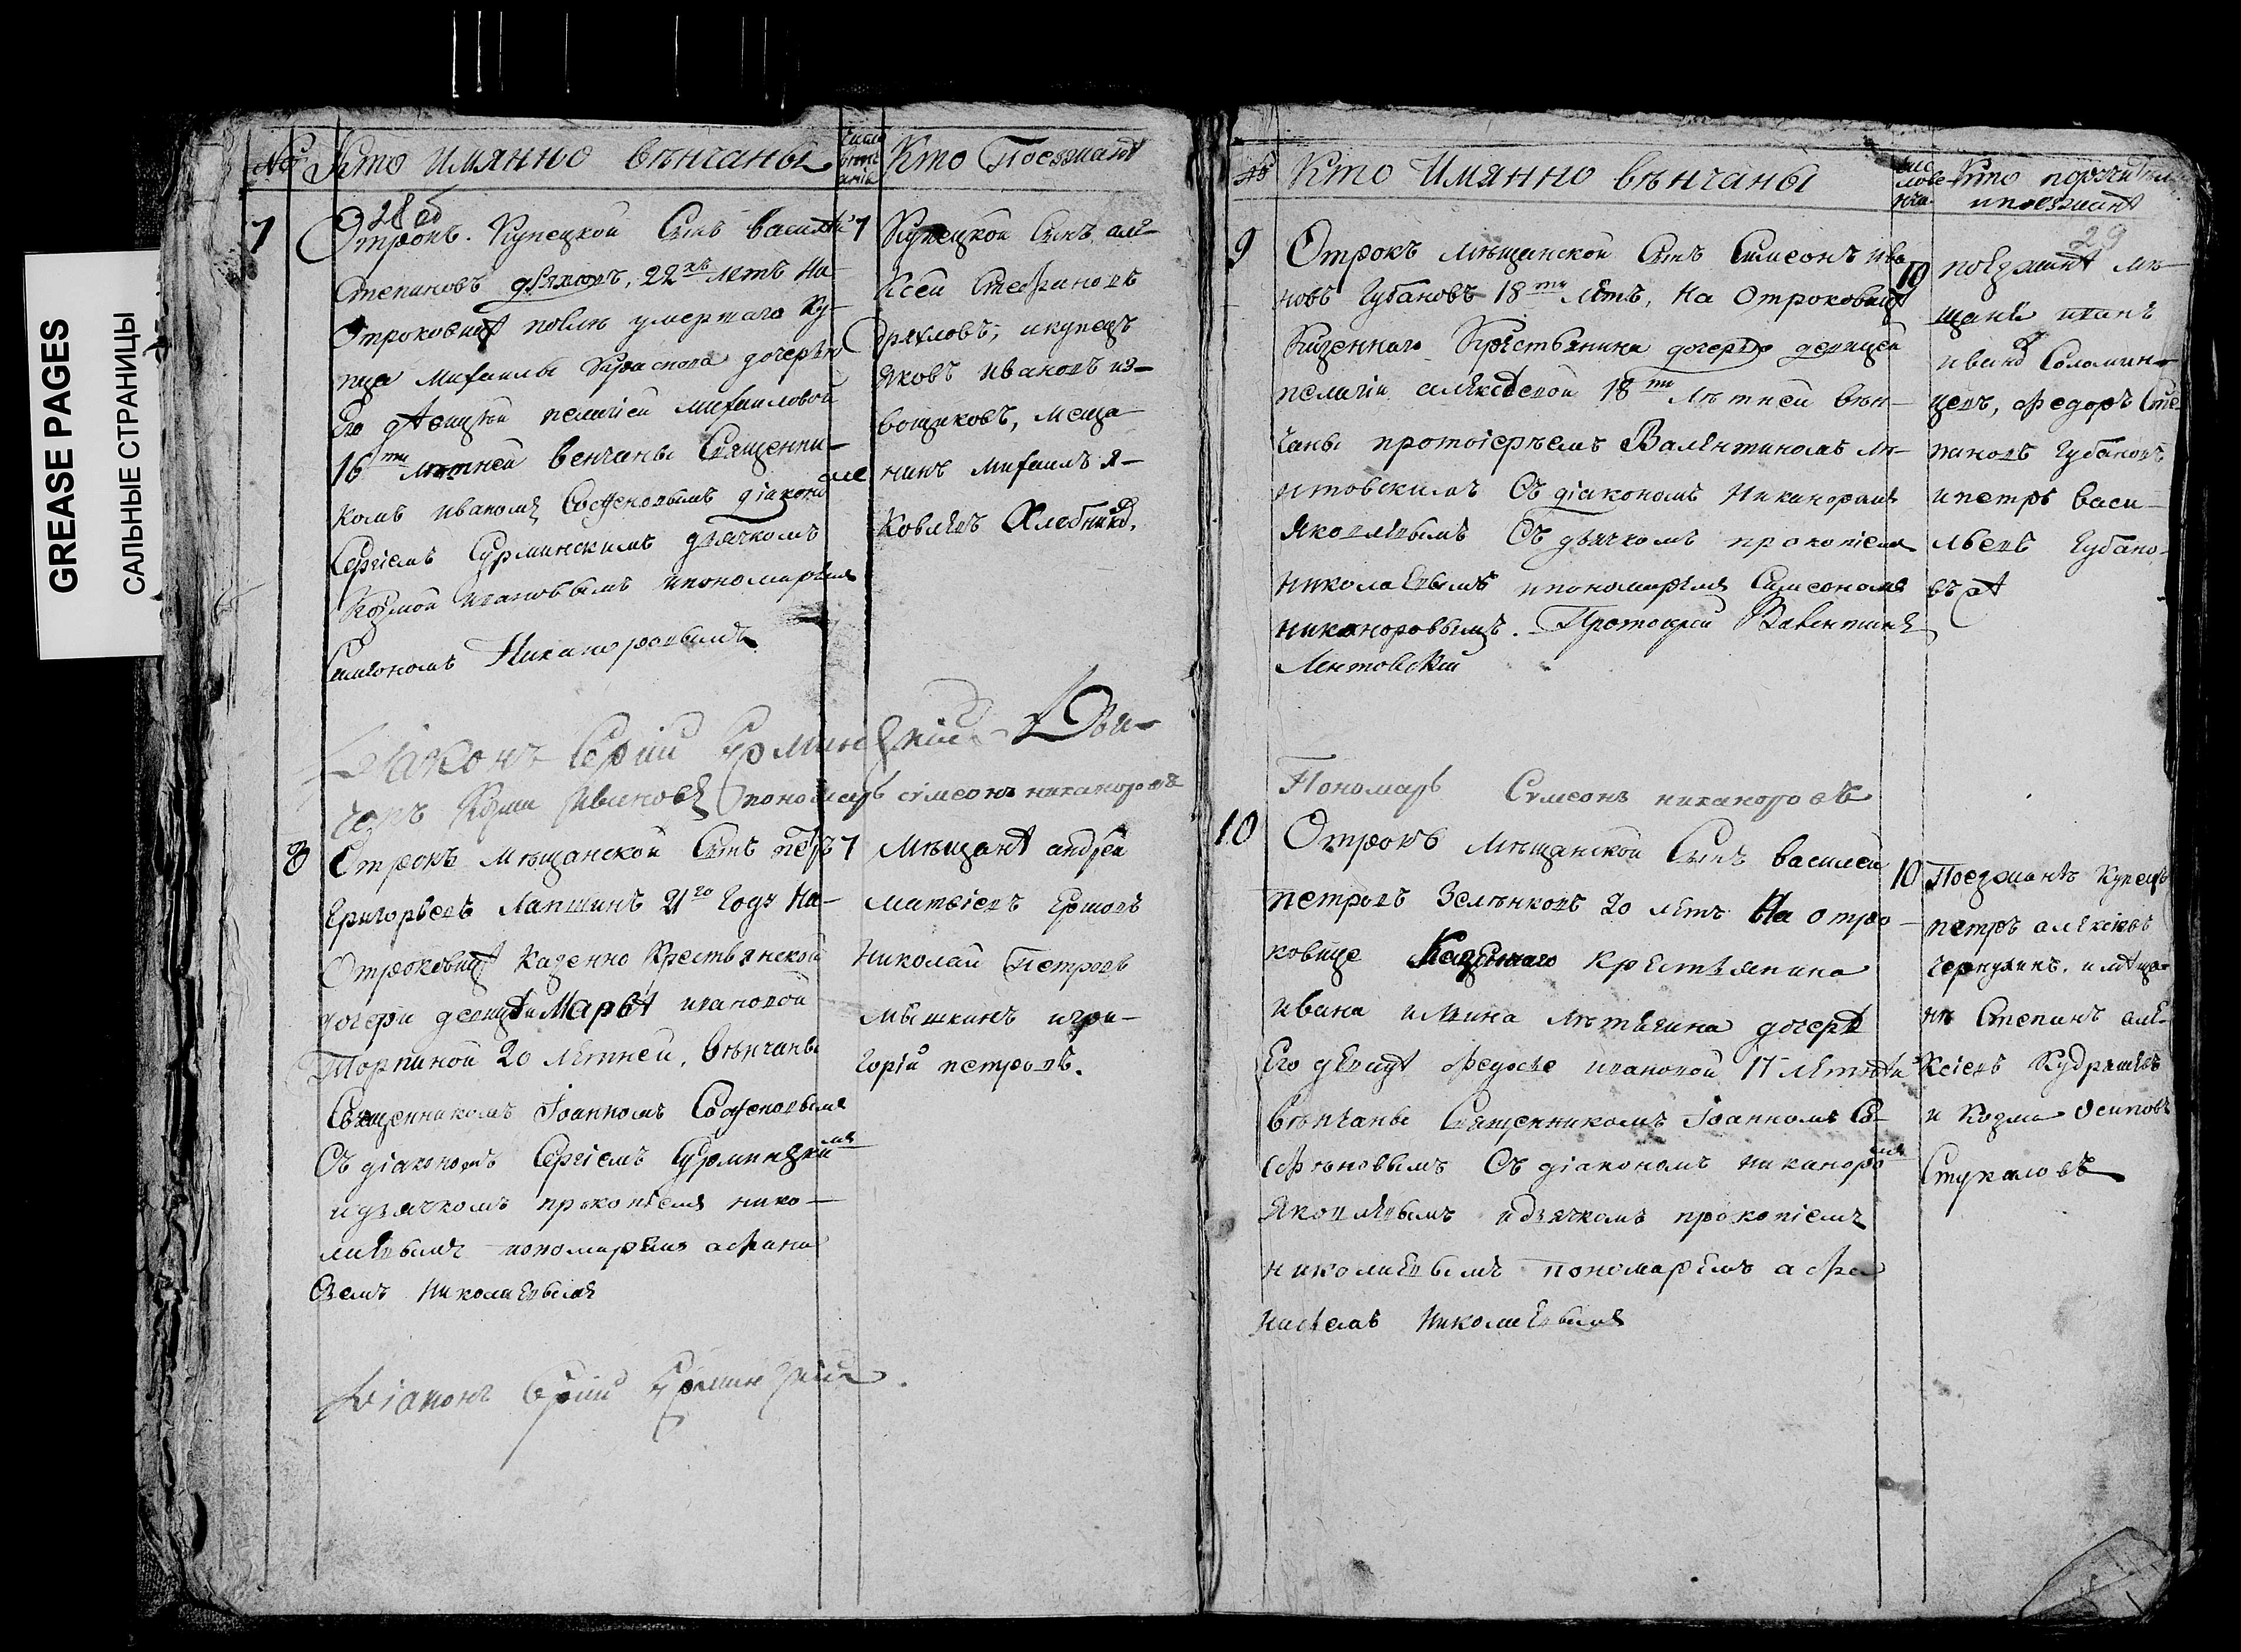 GREASE PAGES
САЛЬНЫЕ СТРАНИЦЫ
№ Кто имянно вѣнчаны
Число
Кто Поезжанѣ
28 об
7 Отрокъ Купецкой Сынъ василѣй
Степановъ 22хъ лѣтъ На
Отроковицѣ умершаго Ку-
пца Михаилы Краснова дочерѣю
Его дѣвицѣй пелагiей Михаиловой
16ти лѣтней венчаны Священни-
комъ иваномъ диакономъ
Сергiемъ Сурминскимъ дьячкомъ
Козмой ивановымъ ипономаремъ
Симеономъ Никаноровымъ
7 Купецкой Сынъ але-
ксей Стефановъ
Дряхловъ, икупецъ
яковъ ивановъ из-
вощиковъ, меща-
нинъ михаилъ я-
ковлевъ Хлебник.
Дiаконъ Сергiй Сурминскiй Дьи-
чекъ Козма Ивановъ пономарь симеонъ никаноровъ
8 Отрокъ мѣщанской Сынъ петръ
Григорьевъ Лапшинъ 21го Года На-
Отроковицѣ Казенно Крестьянской
дочери девицѣй Марьѣ ивановой
Торпиной 20 лѣтней, вѣнчаны
Священникомъ Iоанномъ
Съ дiакономъ Сергiемъ Сурминскимъ
и дьячкомъ прокопiемъ нико-
лаевымъ пономаремъ афана
Сiемъ николаевымъ
7 Мѣщанѣ андрей
матвiевъ Ершовъ
Николай Петровъ
мышкинъ игри-
горiй петровъ.
Дiаконъ Сергiй Сурминскiй.
№ Кто Имянно вѣнчаны
Кто поручители
ипоезжанѣ
29
9 Отрокъ мѣщанской Сынъ Симеонъ ива
новъ Губановъ 18ти лѣтъ, на Отроковицѣ
Казеннаго Крестьянина дочерью девицей
пелагiи алексѣевой 18ти лѣтней вѣн-
чаны протоiереемъ Валентиномъ ле-
нтовскимъ Съ дiакономъ никаноромъ
Яковлевымъ Съ дьячкомъ прокопiемъ
николаевымъ ипономаремъ Симеономъ
никоноровымъ. Протоiерей Валентинъ
Лентовскiй
10 поезжанѣ мѣ-
щанѣ иванъ
ивановъ Соломин-
цевъ, Федоръ Сте
пановъ Губановъ
ипетръ васи-
льевъ Губано-
въ
Пономарь Симеонъ никаноровъ
10 Отрокъ мѣщанской Сынъ василей
петровъ Зеленковъ 20 лѣтъ На отро-
ковице Казённаго крестьянина
ивана дочерѣ
Его девицѣ Федосье ивановой 17 лѣтнѣй
вѣнчаны Священникомъ Iоанномъ Со-
Съ дiакономъ никаноромъ
Яковлевымъ идьячкомъ прокопiемъ
николаевымъ пономаремъ афа
насiемъ николаевымъ
10 Поезжанѣ Купецъ
петръ алексѣевъ
имѣща-
нъ Степанъ але-
ксiевъ Кудряшевъ
и Козма Осиповъ
Стукаловъ